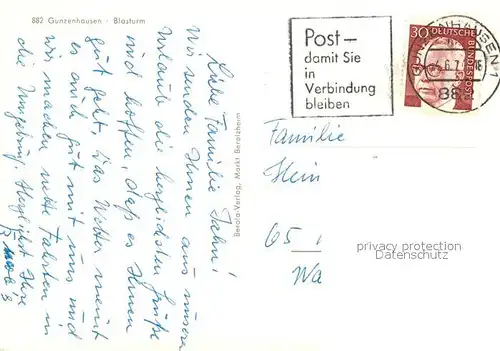 882 Gunzenhausen - Blasturm
Liebe Familie Jahn!
Wir senden Ihnen aus unserem
Urlaub die herzlichsten Grüße
und hoffen, daß es Ihnen
gut geht. Das Wetter meint
es auch gut mit uns und
wir machen nette Fahrten in
die Umgebung. Herzlichst Ihre
Berola-Verlag, Markt Berolzheim
Post –
damit Sie
in
Verbindung
bleiben
30
DEUTSCHE
BUNDESPOST
ENHAUSEN 1
88
Familie
Hein
65
Wa
privacy protection
Datenschutz